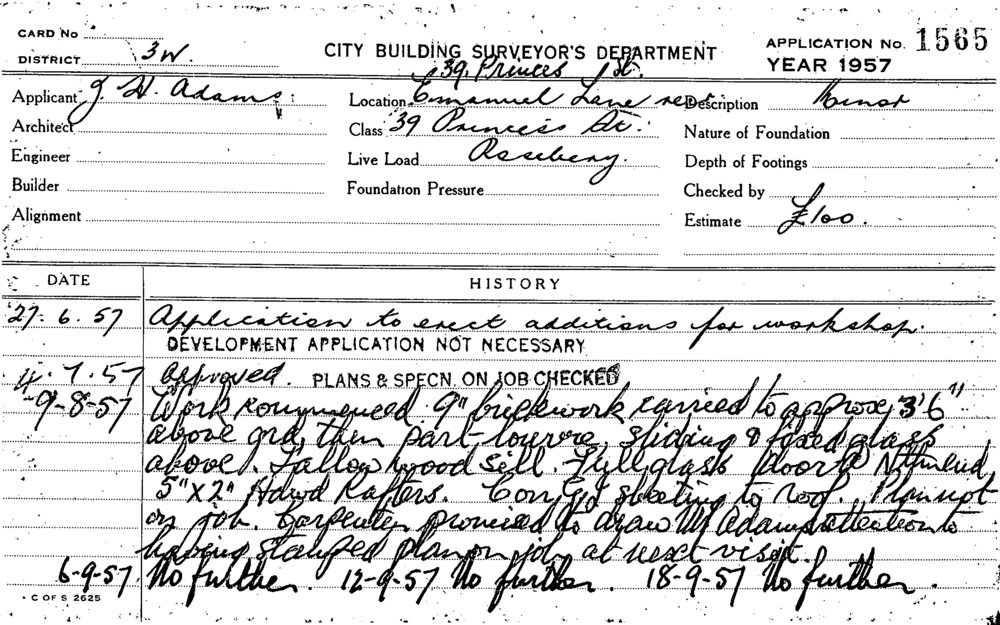 CARD No
DISTRICT 3W.
CITY BUILDING SURVEYOR'S DEPARTMENT
APPLICATION No. 1565
YEAR 1957
39 Princes St.
Applicant J. H. Adams
Location Emanuel Lane rear
Description Minor
Architect
Class 39 Princess St.
Nature of Foundation
Engineer
Live Load Rosebery.
Depth of Footings
Builder
Foundation Pressure
Checked by
Alignment
Estimate £100.
DATE HISTORY
27. 6. 57 Application to erect additions for workshop.
DEVELOPMENT APPLICATION NOT NECESSARY
4. 7. 57 Approved. PLANS & SPECN. ON JOB CHECKED
9-8-57 Work commenced 9" brickwork carried to approx 3'6"
above grd, then part louvre, sliding & fixed glass
above. Tallow wood Sill. Full glass door
5" x 2" Hdwd Rafters. Corr Gd sheeting to roof. Plan not
on job. Carpenter promised to draw Mr Adams attention to
having stamped plan on job at next visit.
6-9-57. No further. 12-9-57 No further. 18-9-57 No further.
C OF S 2625